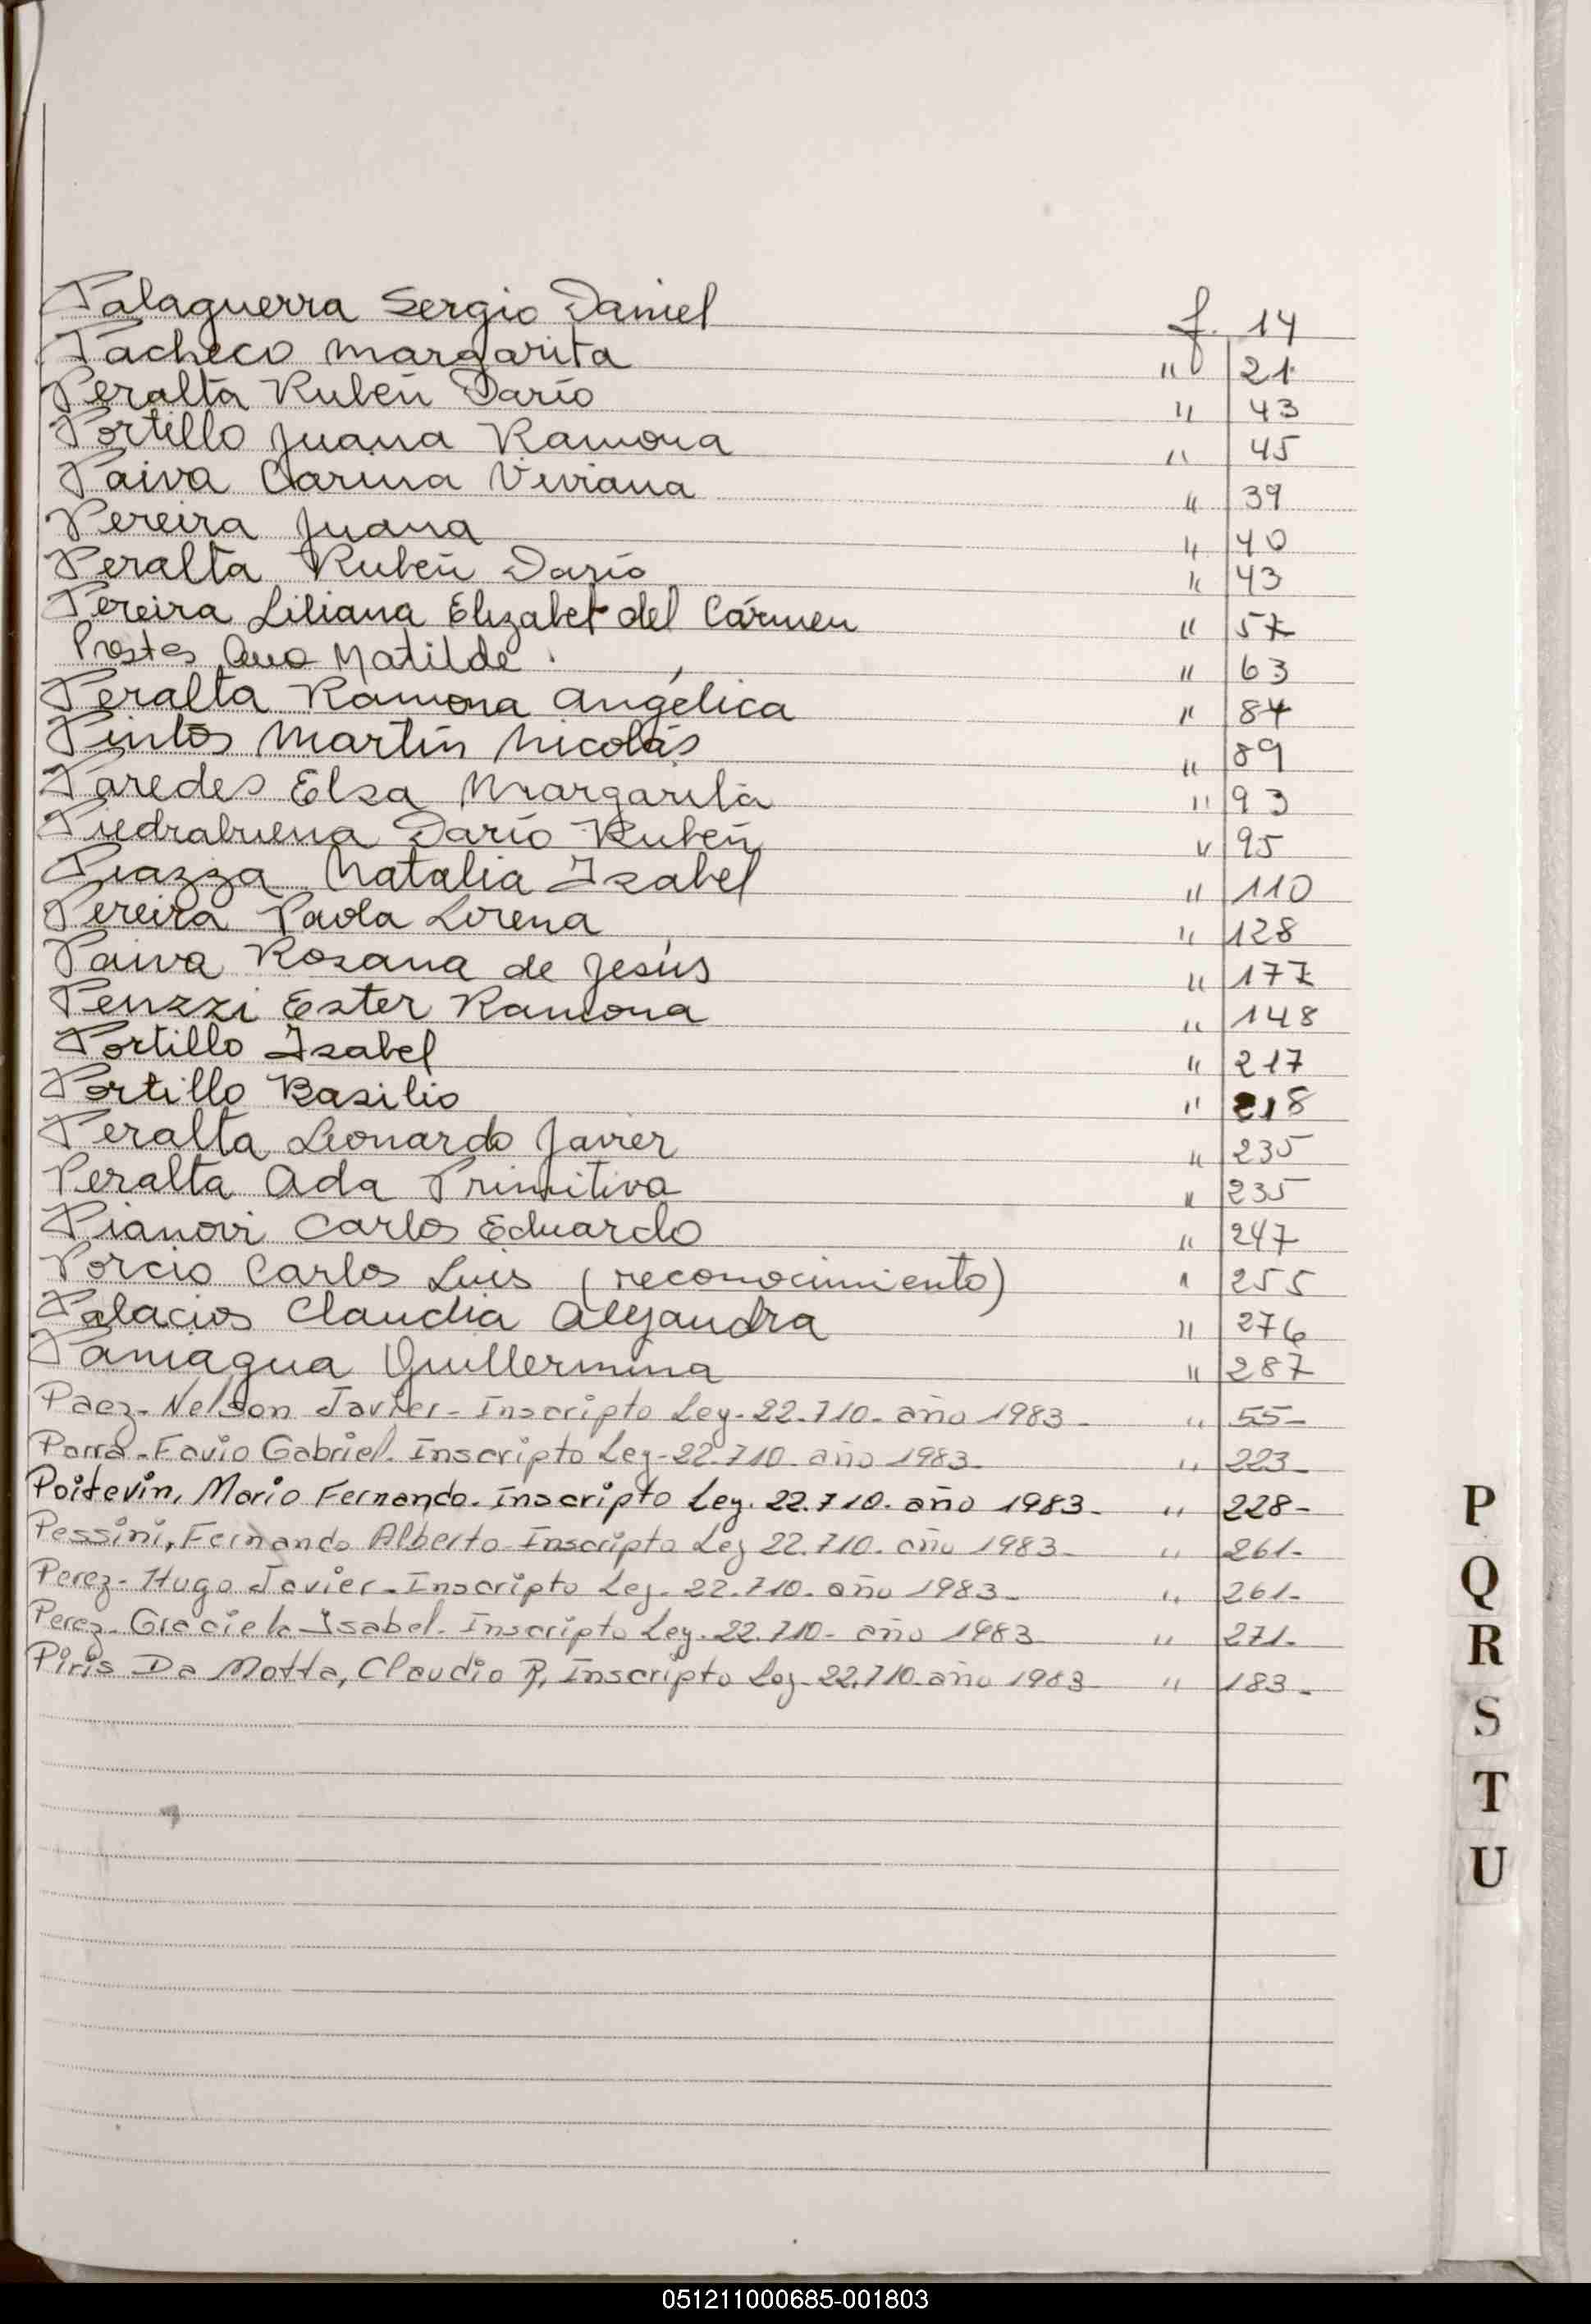 Palaguerra Sergio Daniel f. 14
Pacheco Margarita " 21
Peralta Rubén Darío " 43
Portillo Juana Ramona " 45
Paiva Carina Viviana " 39
Pereira Juana " 40
Peralta Rubén Darío " 43
Pereira Liliana Elizabet del Cármen " 57
Prestes Ana Matilde " 63
Peralta Ramona Angélica " 84
Pintos Martín Nicolás " 89
Paredes Elsa Margarita " 93
Piedrabuena Darío Rubén " 95
Piazza Natalia Isabel " 110
Pereira Paola Lorena " 128
Paiva Rosana de Jesús " 177
Penzzi Ester Ramona " 148
Portillo Isabel " 217
Portillo Basilio " 218
Peralta Leonardo Javier " 235
Peralta Ada Primitiva " 235
Pianovi Carlos Eduardo " 247
Porcio Carlos Luis (reconocimiento) " 255
Palacios Claudia Alejandra " 276
Paniagua Guillermina " 287
Paez- Nelson Javier- Inscripto Ley- 22.710- año 1983- " 55-
Parra- Favio Gabriel. Inscripto Ley- 22.710- año 1983- " 223-
Poitevin, Mario Fernando. Inscripto Ley. 22.710. año 1983- " 228-
Pessini, Fernando Alberto- Inscripto Ley 22.710- año 1983- " 261-
Perez- Hugo Javier- Inscripto Ley- 22.710- año 1983- " 261-
Perez- Graciela Isabel- Inscripto Ley. 22.710- año 1983- " 271-
Piris Da Motta, Claudio R, Inscripto Ley- 22.710- año 1983- " 183-
P
Q
R
S
T
U
051211000685-001803